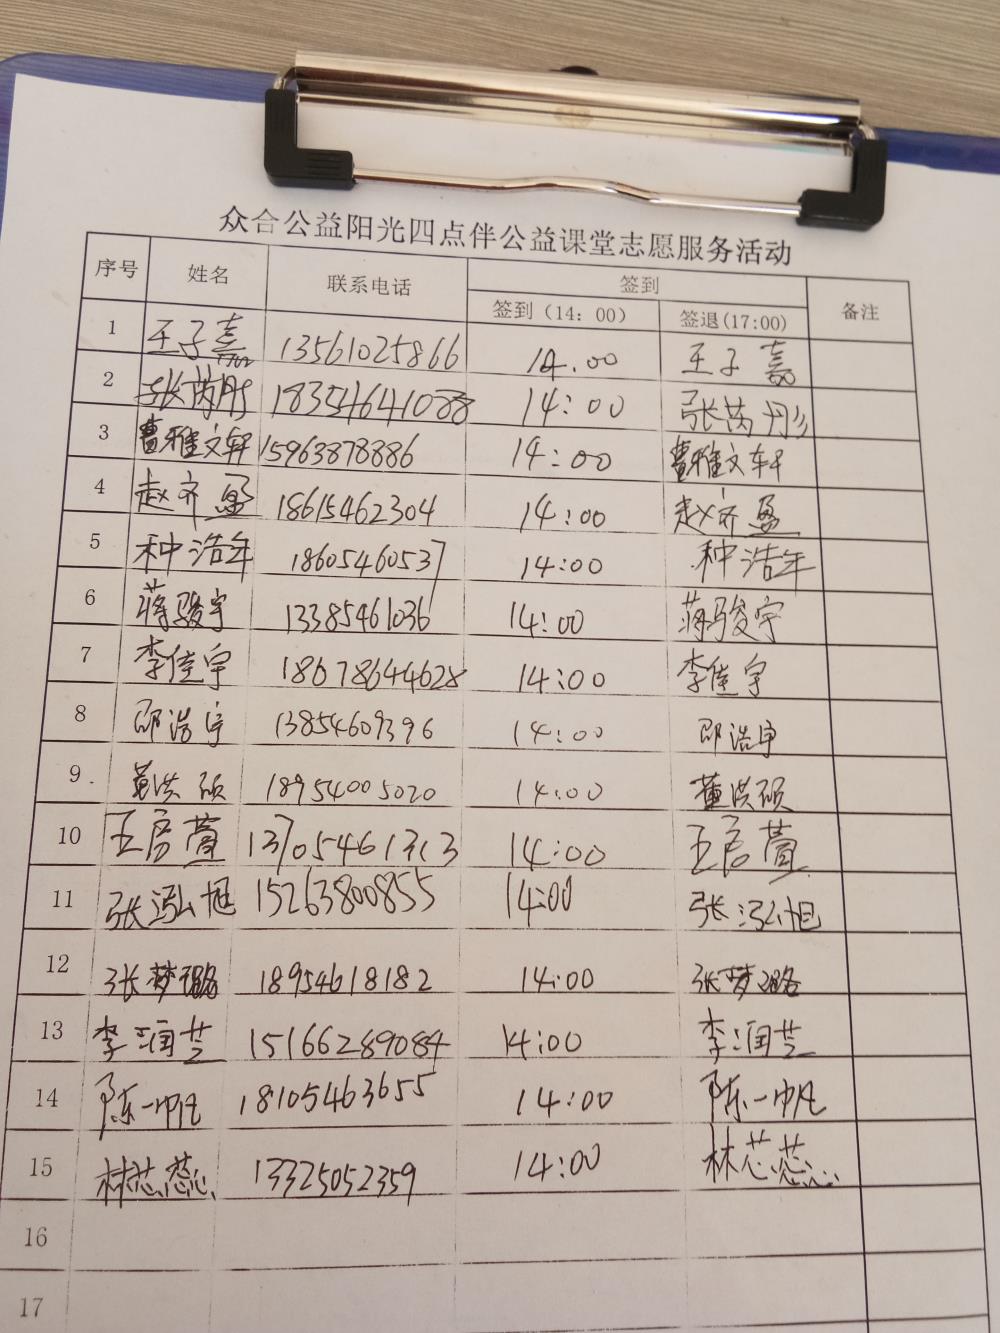 众合公益阳光四点伴公益课堂志愿服务活动
序号 姓名 联系电话 签到 备注
签到（14：00） 签退(17:00)
1 王子嘉 13561025866 14.00 王子嘉
2 张芮彤 18354641088 14:00 张芮彤
3 曹雅文轩 15963878886 14:00 曹雅文轩
4 赵齐盈 18615462304 14:00 赵齐盈
5 种浩年 18605460537 14:00 种浩年
6 蒋骏宇 13385461036 14:00 蒋骏宇
7 李佳宇 18678644628 14:00 李佳宇
8 邵浩宇 13854609396 14:00 邵浩宇
9 董洪硕 18954005020 14:00 董洪硕
10 王启萱 13705461313 14:00 王启萱
11 张泓旭 15263800855 14:00 张泓旭
12 张梦璐 18954618182 14:00 张梦璐
13 李润芝 15166289084 14:00 李润芝
14 陈一帆 18105463655 14:00 陈一帆
15 林芯蕊 13325052359 14:00 林芯蕊
16
17